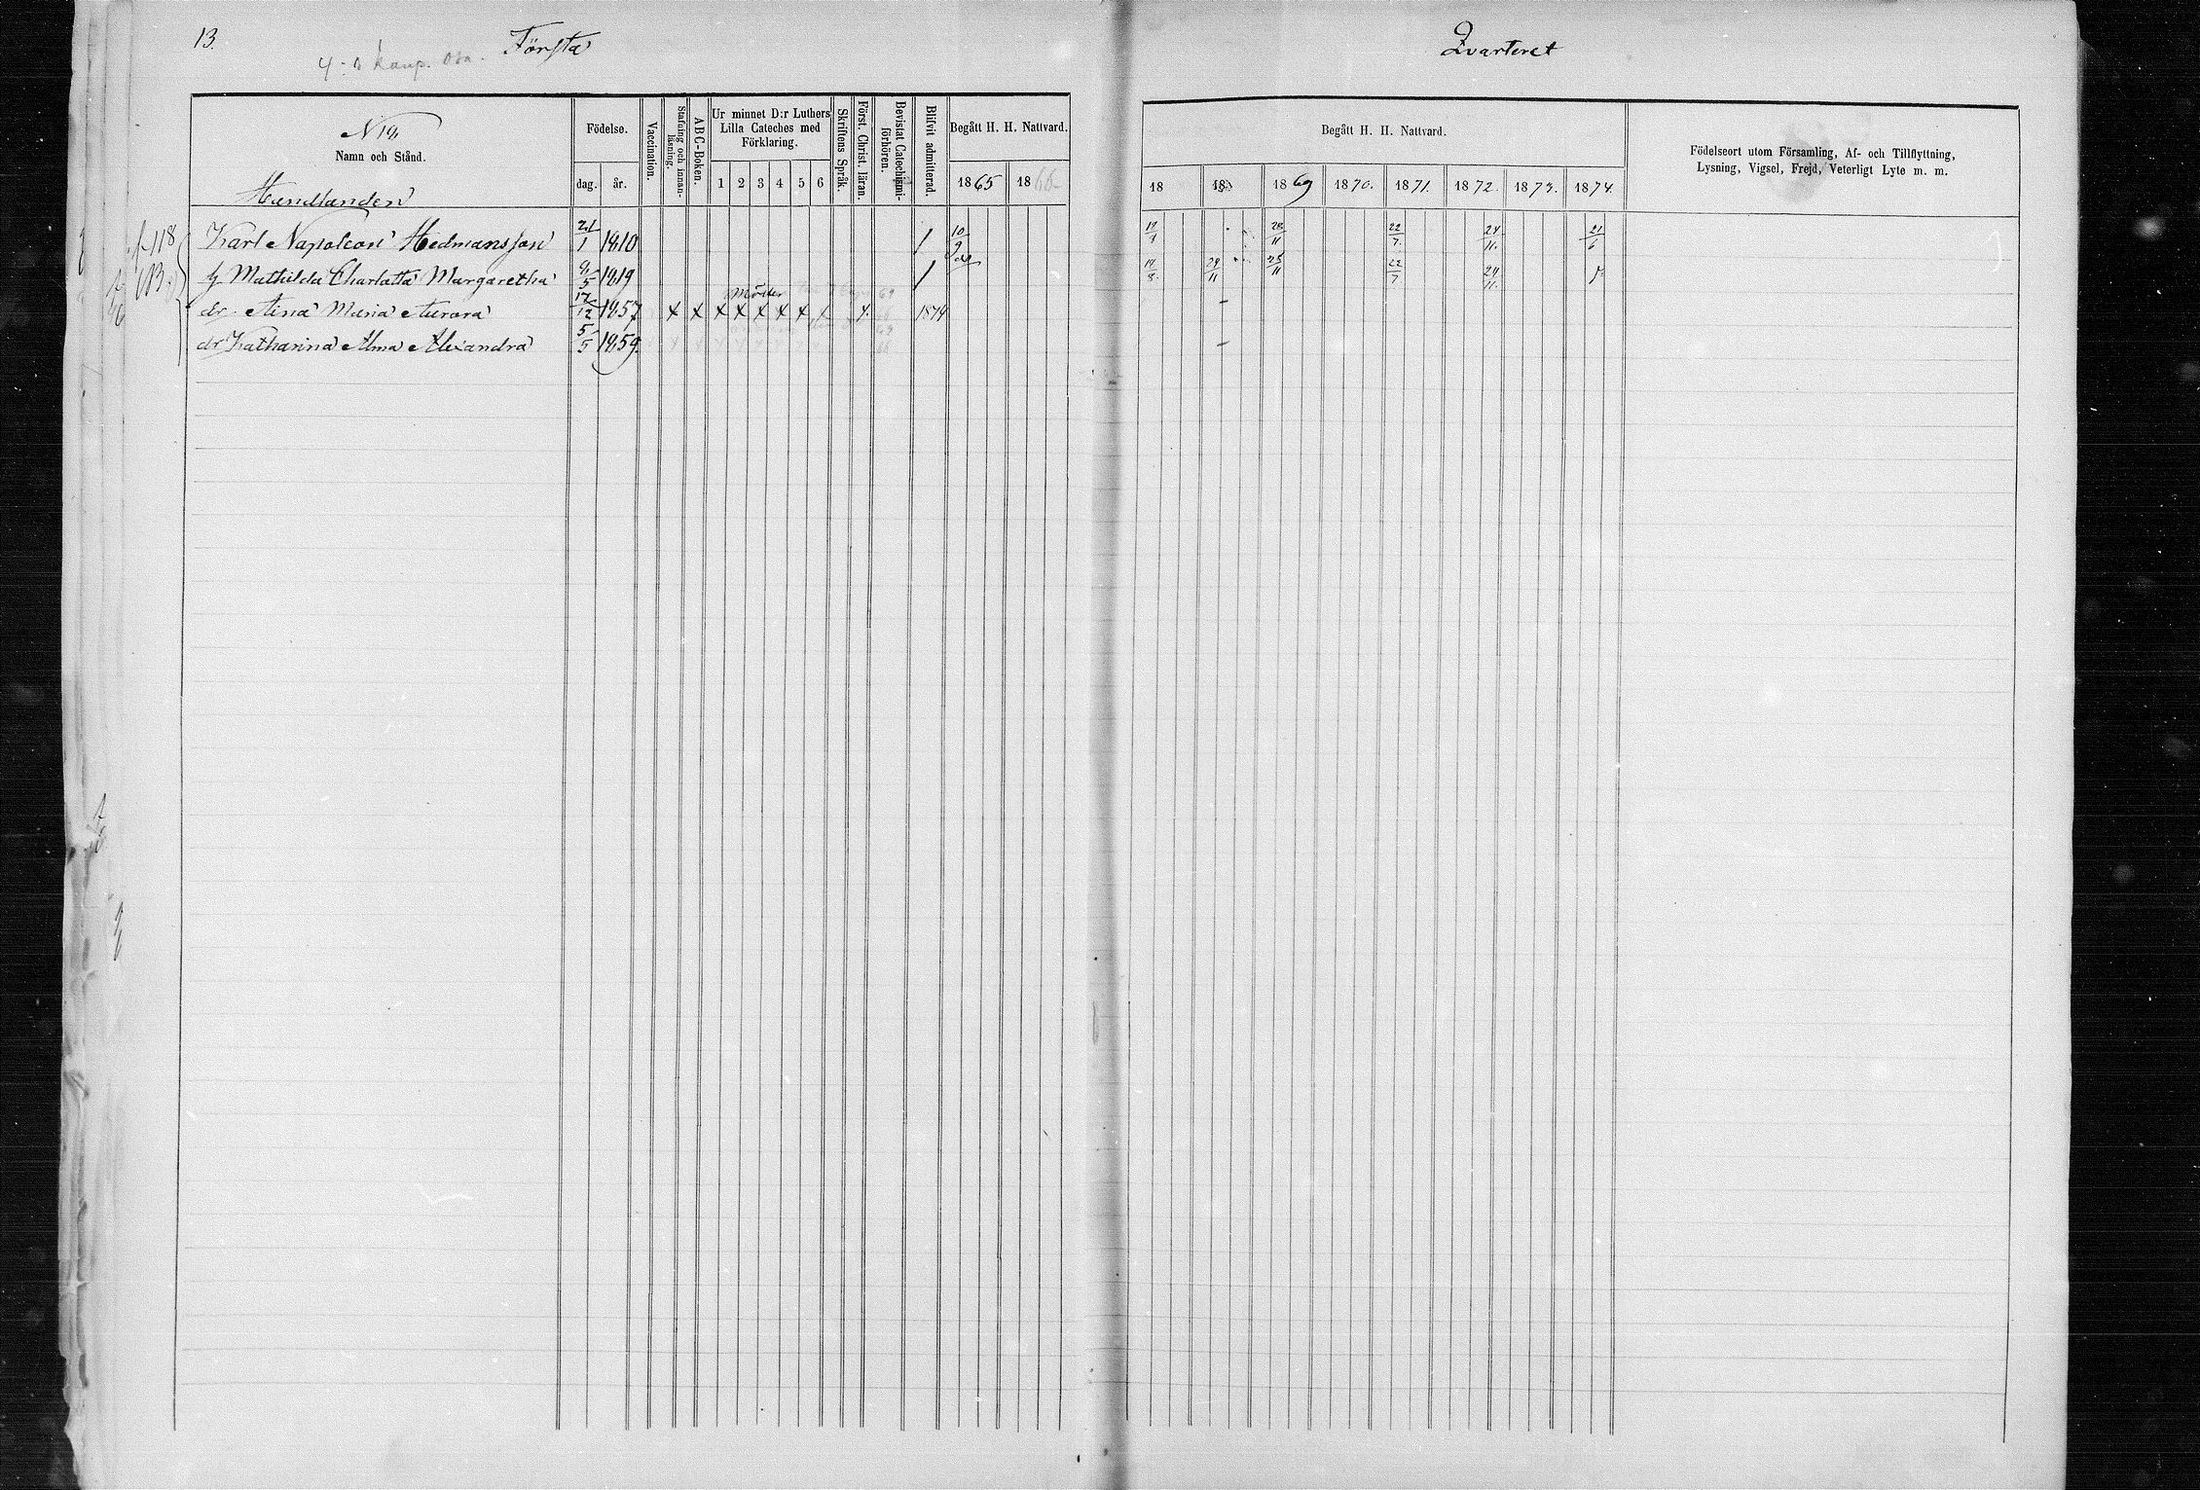 13.
Första
Qvarteret
4:s kaup. osa.
Namn och Stånd.
Födelse.
dag. år.
Vaccination.
Stafning och innan-läsning.
ABC-Boken.
Ur minnet D:r Luthers
Lilla Cateches med
Förklaring.
1 2 3 4 5 6
Skriftens Språk.
Först. Christ. läran.
Bevistat Catechismi-förhören.
Blifvit admitterad.
Begått H. H. Nattvard.
1865 1866
Begått H. H. Nattvard.
18 18 1869 1870. 1871. 1872. 1873. 1874.
Födelseort utom Församling, Af- och Tillflyttning,
Lysning, Vigsel, Frejd, Veterligt Lyte m. m.
Handlanden
f. 118 Karl Napoleon Hedmansson 21/1 1810 / 10/9 28/11 22/7. 24/11. 21/6
h. Mathilda Charlotta Margaretha 9/5 1819 / 29/11 28/11 22/7 24/11.
dr. Aina Maria Aurora 17/12 1857 x x x x x x x x x 1874 -
dr Katharina Alma Alexandra 5/5 1859. -